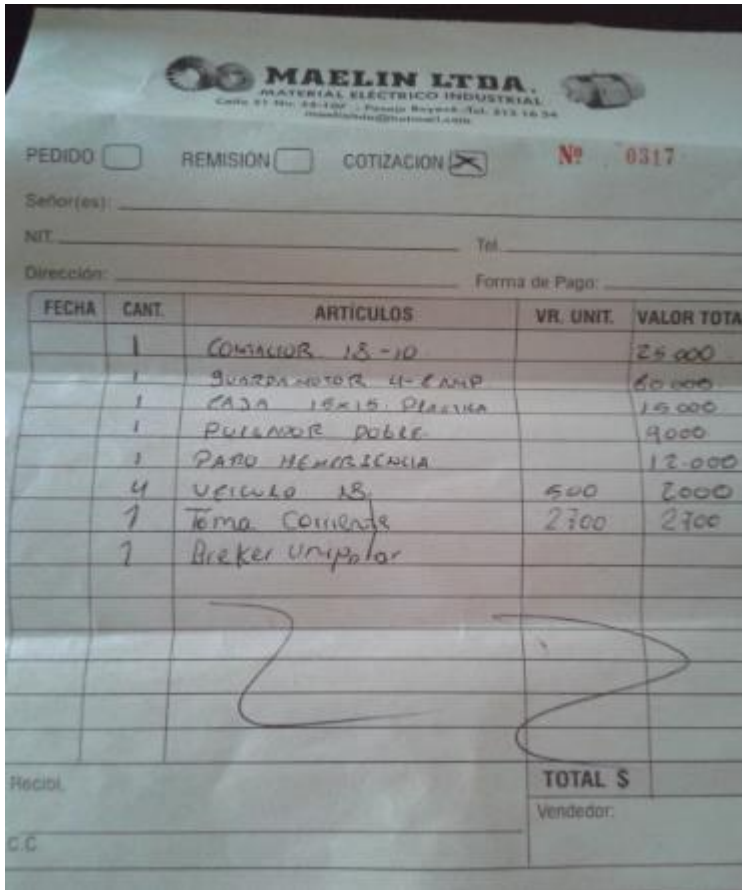 MAELIN LTDA.
MATERIAL ELÉCTRICO INDUSTRIAL
PEDIDO REMISIÓN COTIZACION X Nº 0317
Señor(es):
NIT. Tel.
Dirección: Forma de Pago:
FECHA CANT. ARTÍCULOS VR. UNIT. VALOR TOTA
1 CONTACTOR 18-10 25.000
1 GUARDAMOTOR 4-6 AMP 60.000
1 CAJA 15x15 PLASTICA 15000
1 PULSADOR DOBLE 9000
1 PARO 12.000
4 18 500 2000
1 Toma Corriente 2700 2700
1 Breker Unipolar
Recibí.
TOTAL $
Vendedor:
C.C.